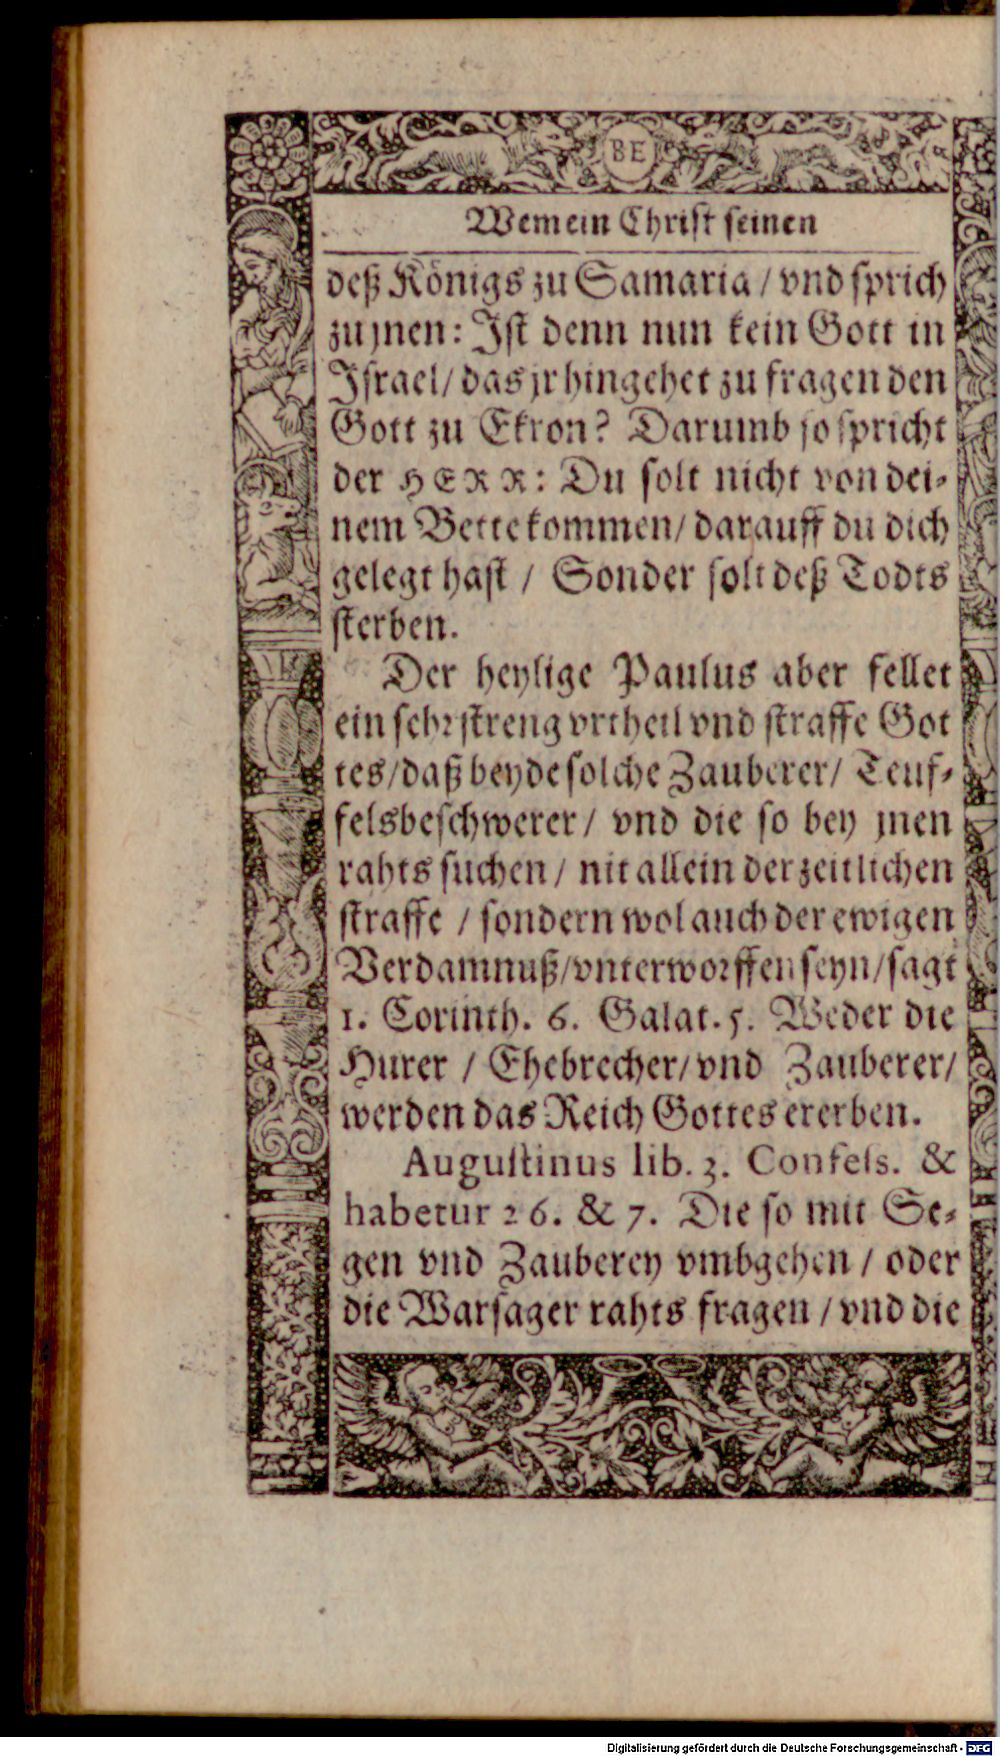 BE
Wem ein Christ seinen
deß Königs zu Samaria / vnd sprich
zu jnen: Ist denn nun kein Gott in
Israel / das jr hingehet zu fragen den
Gott zu Ekron? Darumb so spricht
der HERR: Du solt nicht von dei-
nem Bette kommen / darauff du dich
gelegt hast / Sonder solt deß Todts
sterben.
Der heylige Paulus aber fellet
ein sehr streng vrtheil vnd straffe Got
tes / daß beyde solche Zauberer / Teuf-
felsbeschwerer / vnd die so bey jnen
rahts suchen / nit allein der zeitlichen
straffe / sondern wol auch der ewigen
Verdamnuß / vnterworffen seyn / sagt
1. Corinth. 6. Galat. 5. Weder die
Hurer / Ehebrecher / vnd Zauberer /
werden das Reich Gottes ererben.
Augustinus lib. 3. Confess. &
habetur 26. & 7. Die so mit Se-
gen vnd Zauberey vmbgehen / oder
die Warsager rahts fragen / vnd die
Digitalisierung gefördert durch die Deutsche Forschungsgemeinschaft - DFG